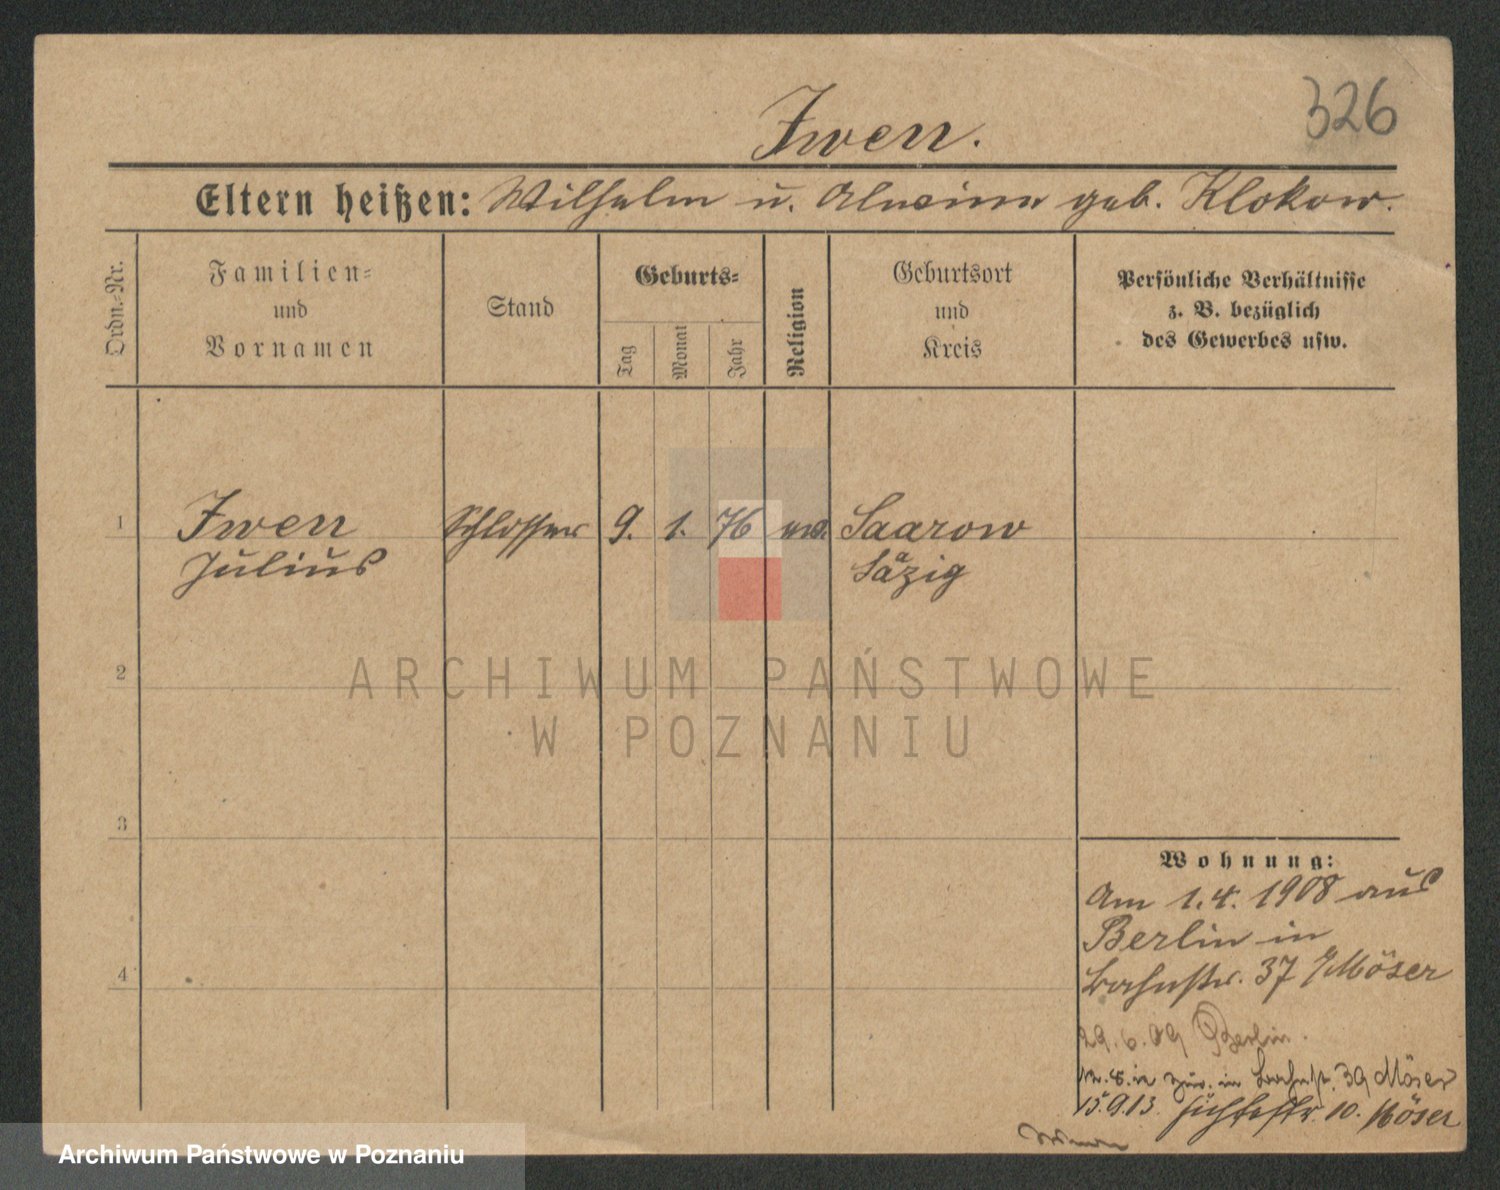 326
Iwen.
Eltern heißen: Wilhelm u. Alwine geb. Klokow.
Ordn.-Nr.
Familien-
und
Vornamen
Stand
Geburts-
Tag
Monat
Jahr
Religion
Geburtsort
und
Kreis
Persönliche Verhältnisse
z. B. bezüglich
des Gewerbes usw.
1 Iwen Schlosser 9. 1. 76 Saarow
Julius Säzig
2
ARCHIWUM PAŃSTWOWE
W POZNANIU
3
Wohnung:
Am 1.4. 1908 aus
Berlin in
4
Bahnstr. 37 Möser
29.6.09 Berlin.
in Bahnstr. 39 Möser
15.9.13. 10. Möser
Archiwum Państwowe w Poznaniu